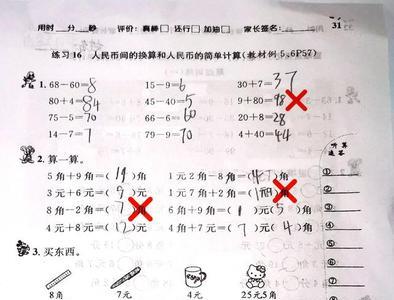 用时___分___秒 评价:真棒□ 还行□ 加油□ 家长签名:______
31
练习16 人民币间的换算和人民币的简单计算(教材例5、6P57)
1. 68-60=8 15-9=6 30+7=37
80+4=84 50-40=10 9+80=98
75-5=70 66-6=60 20+8=28
14-7=7 79-70= 4+40=44
2. 算一算。
5角+9角=(14)角 1元2角-8角=(4)角
3元+6元=(9)元 1元7角+2角=()角
8角-2角=(7)角 6角+9角=(1)元(5)角
4元+8元=(12)元 4角+7元=(7)元(4)角
3. 买东西。
8角 7元 4元 25元5角
听算
速答
①
②
③
④
⑤
⑥
⑦